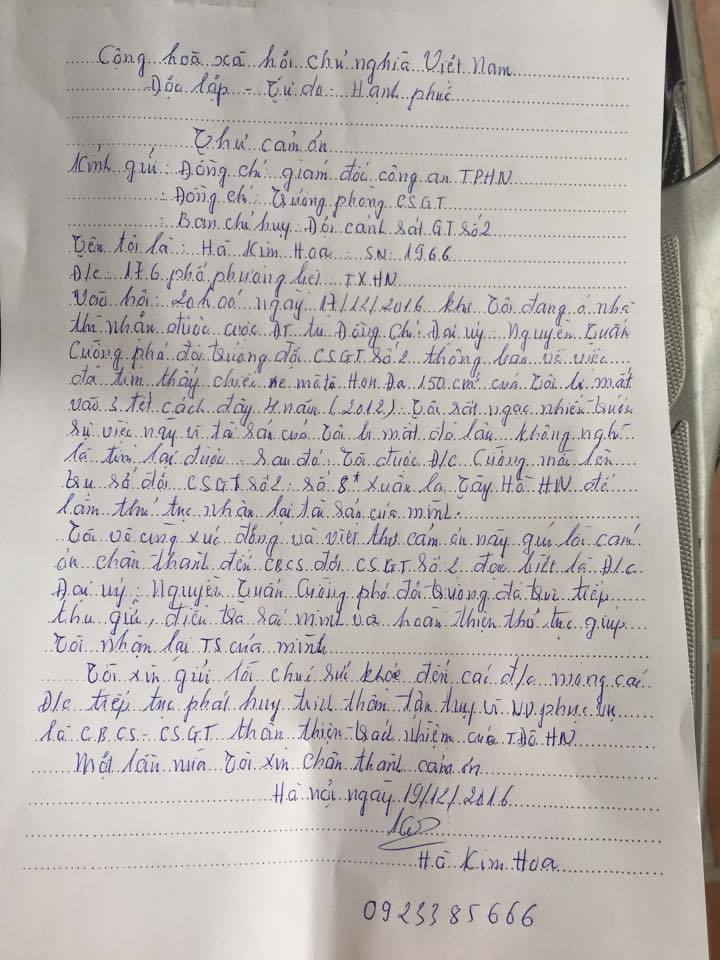 Cộng hoà xã hội chủ nghĩa Việt Nam
Độc lập - Tự do - Hạnh phúc
Thư cảm ơn
Kính gửi: Đồng chí giám đốc công an T.P.HN
: Đồng chí Trưởng phòng C.S.G.T
: Ban chỉ huy Đội cảnh sát GT Số 2
Tên tôi là: Hà Kim Hoa: SN: 1966
Đ/c: 176 phố phương liệt TX.HN
Vào hồi: 20h00 ngày 17/12/2016 khi tôi đang ở nhà
thì nhận được cuộc ĐT từ Đồng Chí Đại úy: Nguyễn Tuấn
Cường phó đội trưởng đội C.S.G.T Số 2 thông báo về việc
đã tìm thấy chiếc xe mô tô HonĐa 150 cm³ của tôi bị mất
vào 3 tết cách đây 4 năm (2012). Tôi rất ngạc nhiên trước
sự việc này vì tài sản của tôi bị mất đó lâu không nghĩ
là tìm lại được. Sau đó: Tôi được Đ/c Cường mời lên
trụ sở đội C.S.G.T. Số 2: Số 8* Xuân la Tây Hồ HN để
làm thủ tục nhận lại tài sản của mình.
Tôi vô cùng xúc động và viết thư cảm ơn này gửi lời cảm
ơn chân thành đến CBCS đội C.S.G.T Số 2 đặc biết là Đ/c
Đại uý: Nguyễn Tuấn Cường phó đội trưởng đã trực tiếp
thu giữ, điều tra xác minh và hoàn thiện thủ tục giúp
Tôi nhận lại TS của mình
Tôi xin gửi lời chúc sức khỏe đến các đ/c mong các
Đ/c tiếp tục phát huy tinh thần tận tụy vì ND phục vụ
là C.B.C.S - C.S.G.T thân thiện trách nhiệm của T.Đô HN
Một lần nữa tôi xin chân thành cảm ơn
Hà nội ngày 19/12/2016
Hà Kim Hoa
0923385666